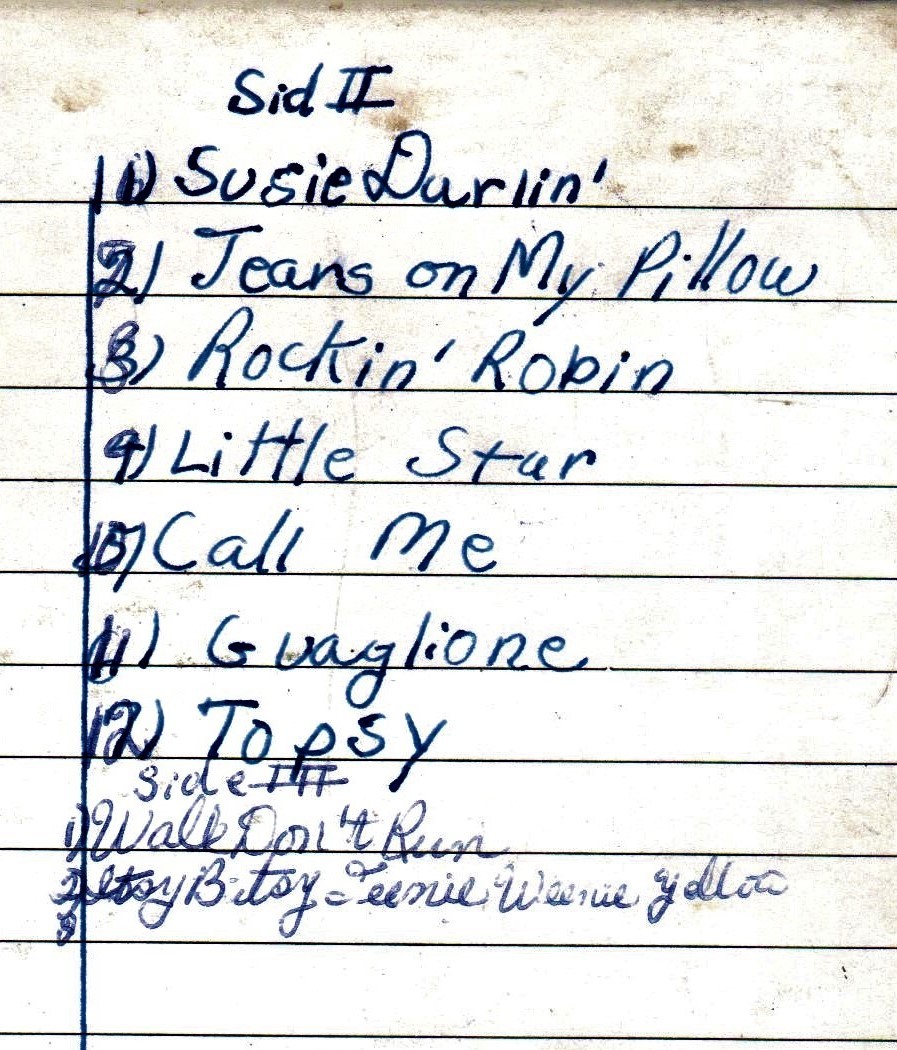 Sid II
1) Susie Darlin'
2) Tears on My Pillow
3) Rockin' Robin
4) Little Star
5) Call Me
11) Guaglione
12) Topsy
Side III
1) Walk Don't Run
2) Itsy Bitsy-Teenie Weenie Yellow
3